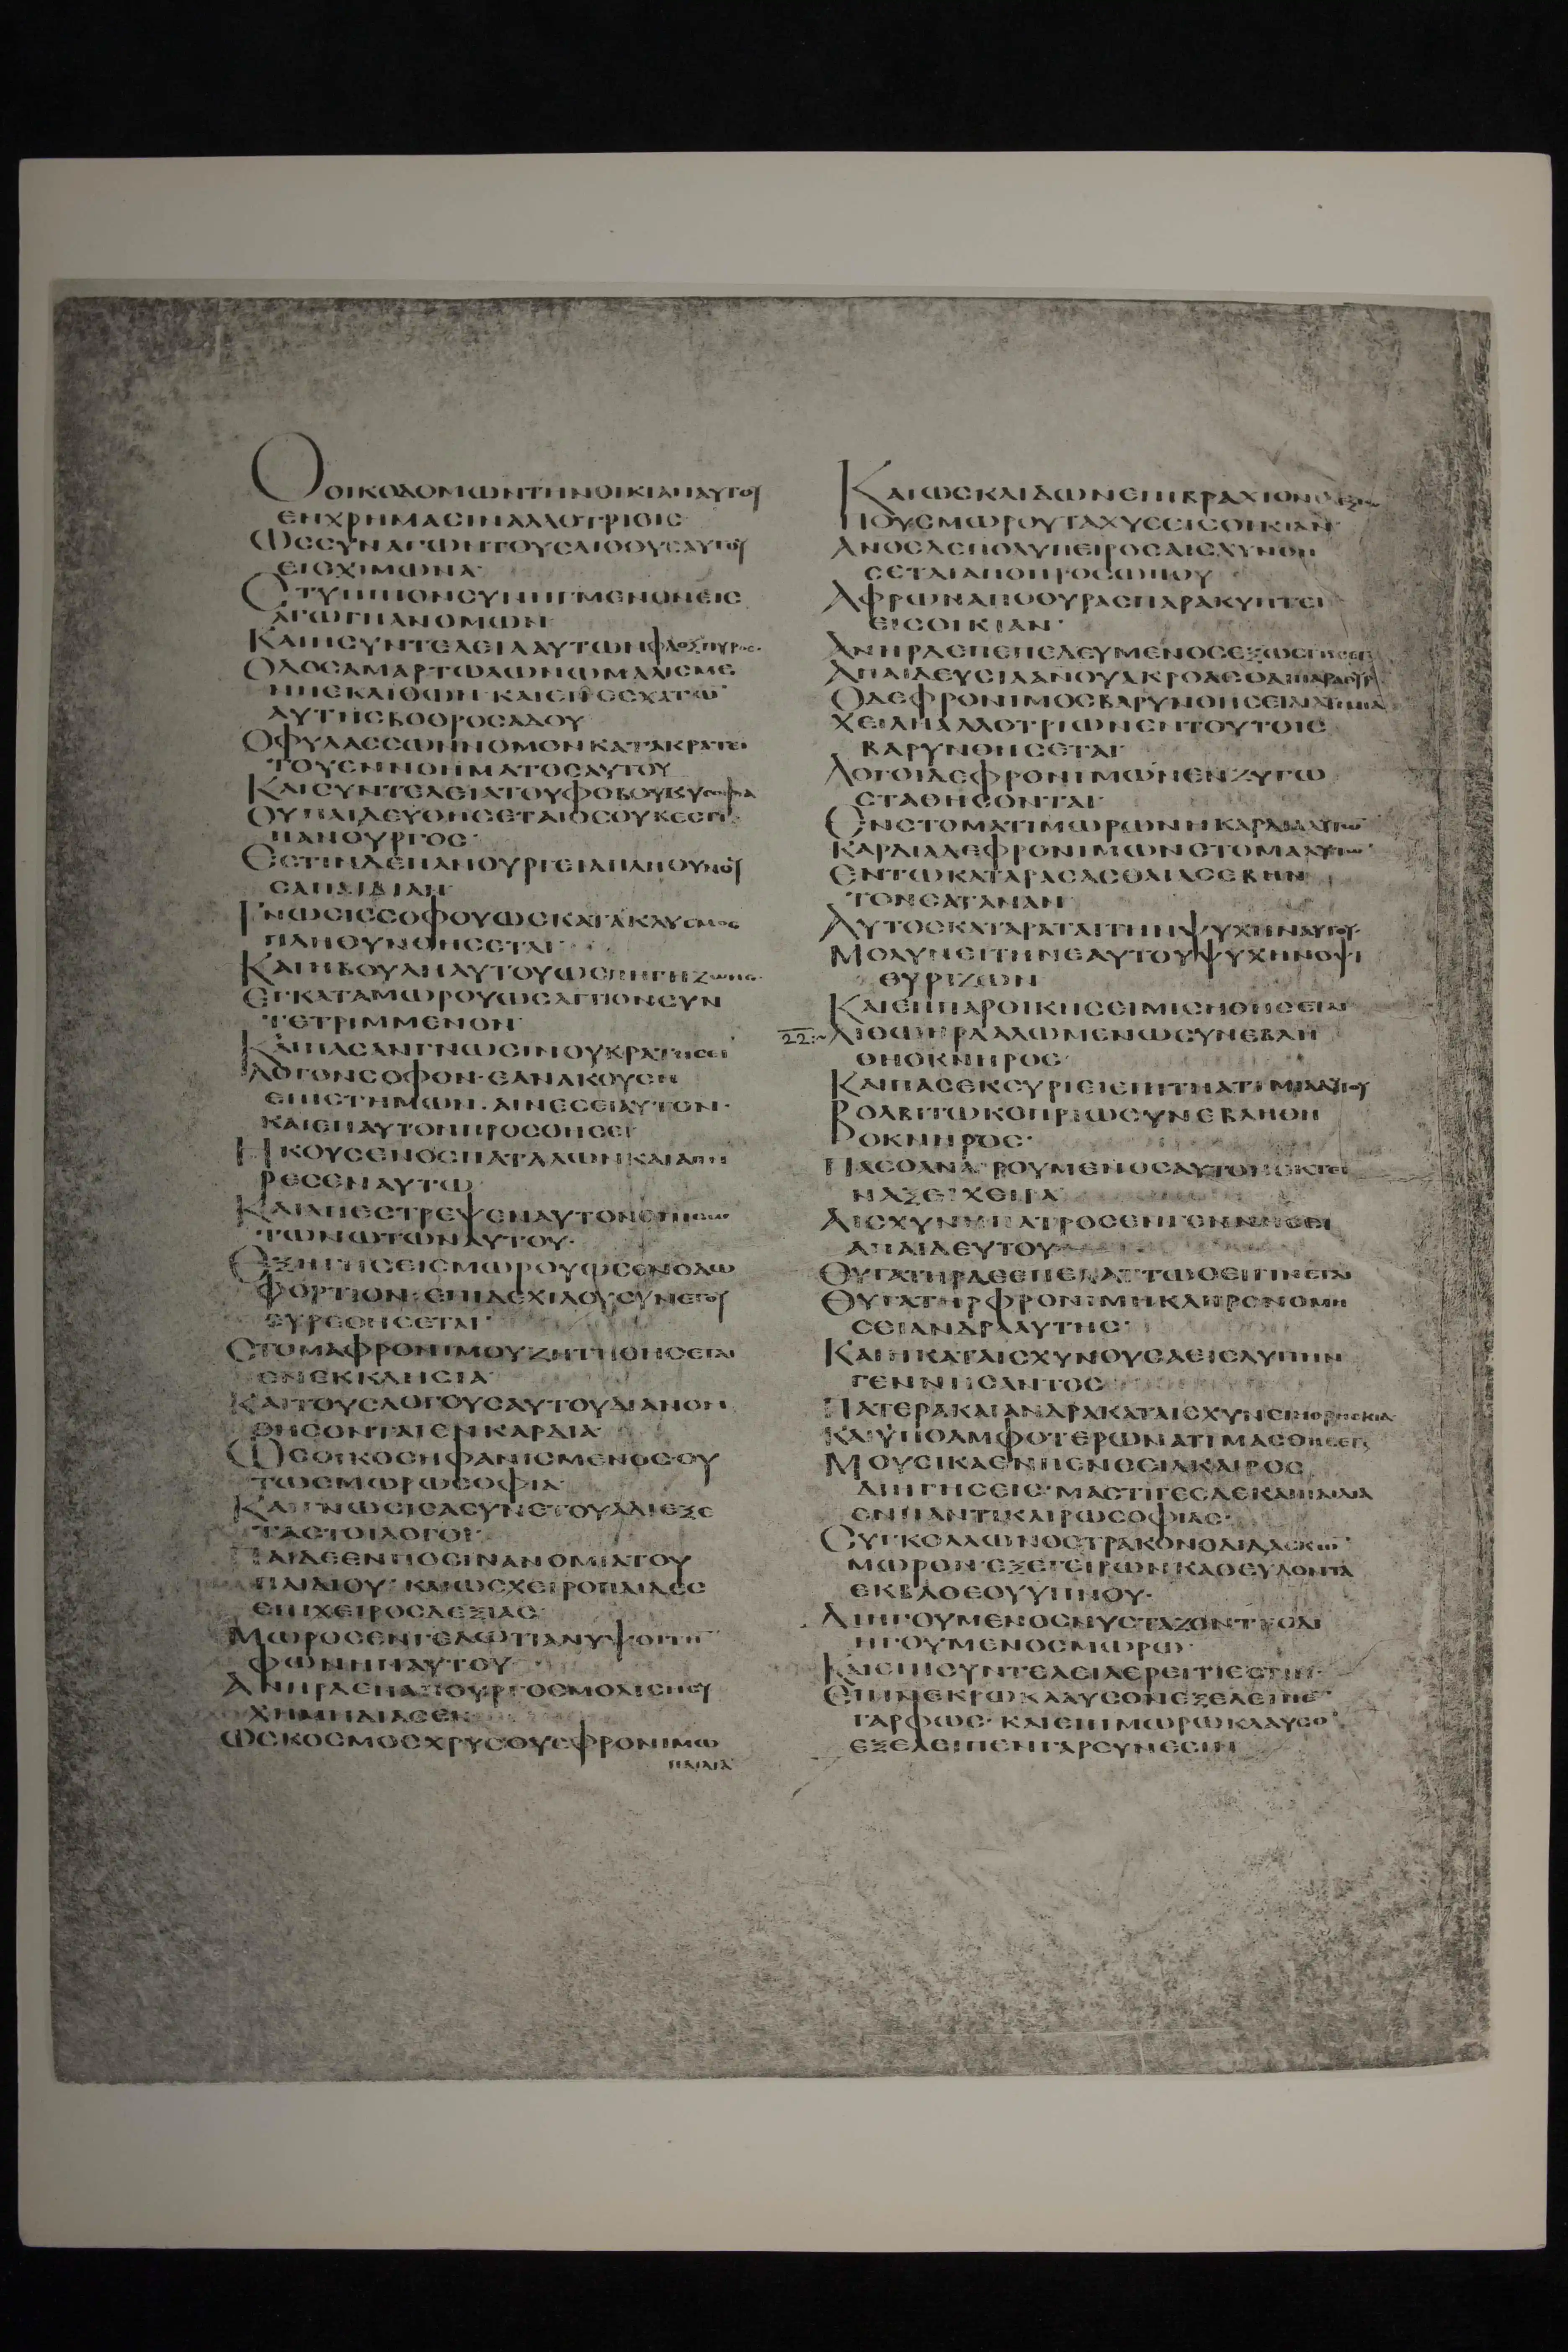 ΟΟΙΚΟΔΟΜΩΝΤΗΝΟΙΚΙΑΝΑΥΤΟΥ
ΕΝΧΡΗΜΑΣΙΝΑΛΛΟΤΡΙΟΙΣ
ΩΣΣΥΝΑΓΩΝΤΟΥΣΛΙΘΟΥΣΑΥΤΟΥ
ΕΙΣΧΙΜΩΝΑ·
ΣΤΥΠΠΙΟΝΣΥΝΗΓΜΕΝΟΝΕΙΣ
ΑΓΩΓΗΑΝΟΜΩΝ·
ΚΑΙΗΣΥΝΤΕΛΕΙΑΑΥΤΩΝΦΛΟΞΠΥΡΟΣ·
ΟΔΟΣΑΜΑΡΤΩΛΩΝΩΜΑΛΙΣΜΕ
ΚΑΙΕΠΕΣΧΑΤΩ
ΑΥΤΗΣΒΟΘΡΟΣΑΔΟΥ
ΟΦΥΛΑΣΣΩΝΝΟΜΟΝΚΑΤΑΚΡΑΤΕΙ
ΤΟΥΕΝΝΟΗΜΑΤΟΣΑΥΤΟΥ
ΚΑΙΣΥΝΤΕΛΕΙΑΤΟΥΦΟΒΟΥΚΥΣΟΦΙΑ
ΟΥΠΑΙΔΕΥΘΗΣΕΤΑΙΟΣΟΥΚΕΣΤΙ
ΠΑΝΟΥΡΓΟΣ·
ΕΣΤΙΝΔΕΠΑΝΟΥΡΓΕΙΑΠΛΗΘΥΝΟΥ
ΣΑΠΙΚΡΙΑΝ
ΓΝΩΣΙΣΣΟΦΟΥΩΣΚΑΤΑΚΛΥΣΜΟΣ
ΠΛΗΘΥΝΘΗΣΕΤΑΙ·
ΚΑΙΗΒΟΥΛΗΑΥΤΟΥΩΣΠΗΓΗΖΩΗΣ·
ΕΓΚΑΤΑΜΩΡΟΥΩΣΑΓΓΙΟΝΣΥΝ
ΤΕΤΡΙΜΜΕΝΟΝ
ΚΑΙΠΑΣΑΝΓΝΩΣΙΝΟΥΚΡΑΤΗΣΕΙ
ΛΟΓΟΝΣΟΦΟΝ·ΕΑΝΑΚΟΥΣΗ
ΕΠΙΣΤΗΜΩΝ·ΑΙΝΕΣΕΙΑΥΤΟΝ·
ΚΑΙΕΠΑΥΤΟΝΠΡΟΣΘΗΣΕΙ
ΗΚΟΥΣΕΝΟΣΠΑΤΑΛΩΝΚΑΙΑΠΗ
ΡΕΣΕΝΑΥΤΩ
ΚΑΙΑΠΕΣΤΡΕΨΕΝΑΥΤΟΝΟΠΙΣΩ
ΤΩΝΩΤΩΝΑΥΤΟΥ·
ΕΞΗΓΗΣΕΙΣΜΩΡΟΥΩΣΕΝΟΔΩ
ΦΟΡΤΙΟΝ·ΕΠΙΔΕΧΙΛΟΥΣΥΝΕΤΟΥ
ΕΥΡΕΘΗΣΕΤΑΙ·
ΣΤΟΜΑΦΡΟΝΙΜΟΥΖΗΤΗΘΗΣΕΤΑΙ
ΕΝΕΚΚΛΗΣΙΑ
ΚΑΙΤΟΥΣΛΟΓΟΥΣΑΥΤΟΥΔΙΑΝΟΗ
ΘΗΣΟΝΤΑΙΕΝΚΑΡΔΙΑ
ΩΣΟΙΚΟΣΗΦΑΝΙΣΜΕΝΟΣ·ΟΥ
ΤΩΣΜΩΡΩΣΟΦΙΑ
ΚΑΙΓΝΩΣΙΣΑΣΥΝΕΤΟΥΑΔΙΕΞΕ
ΤΑΣΤΟΙΛΟΓΟΙ
ΠΑΙΔΕΕΝΠΟΣΙΝΑΝΟΜΙΑΤΟΥ
ΠΑΙΔΙΟΥ·ΚΑΙΩΣΧΕΙΡΟΠΑΙΔΕΣ
ΕΠΙΧΕΙΡΟΣΔΕΞΙΑΣ·
ΜΩΡΟΣΕΝΓΕΛΩΤΙΑΝΥΨΟΙΤΗ
ΦΩΝΗΝΑΥΤΟΥ·
ΑΝΗΡΔΕΠΑΝΟΥΡΓΟΣΜΟΛΙΣΗΣΥ
ΧΗΜΗΔΙΑΣΕΚ
ΩΣΚΟΣΜΟΣΧΡΥΣΟΥΣΦΡΟΝΙΜΩ
ΠΑΙΔΙΑ
ΚΑΙΩΣΚΑΙΔΩΝΕΠΙΒΡΑΧΙΟΝΙΔΕΞΙΩ
ΠΟΥΣΜΩΡΟΥΤΑΧΥΣΕΙΣΟΙΚΙΑΝ
ΑΝΟΣΔΕΠΟΛΥΠΕΙΡΟΣΑΙΣΧΥΝΘΗ
ΣΕΤΑΙΑΠΟΠΡΟΣΩΠΟΥ
ΑΦΡΩΝΑΠΟΘΥΡΑΣΠΑΡΑΚΥΠΤΕΙ
ΕΙΣΟΙΚΙΑΝ·
ΑΝΗΡΔΕΠΕΠΕΔΕΥΜΕΝΟΣΕΞΩΣΤΗΣΕΤΑΙ
ΑΠΑΙΔΕΥΣΙΑΑΝΟΥΑΚΡΟΑΣΘΑΙΠΑΡΑΘΥΡΑ
ΟΔΕΦΡΟΝΙΜΟΣΒΑΡΥΝΘΗΣΕΤΑΙΑΤΙΜΙΑ
ΧΕΙΛΗΑΛΛΟΤΡΙΩΝΕΝΤΟΥΤΟΙΣ
ΒΑΡΥΝΘΗΣΕΤΑΙ
ΛΟΓΟΙΔΕΦΡΟΝΙΜΩΝΕΝΖΥΓΩ
ΣΤΑΘΗΣΟΝΤΑΙ
ΕΝΣΤΟΜΑΤΙΜΩΡΩΝΗΚΑΡΔΙΑΑΥΤΩ
ΚΑΡΔΙΑΔΕΦΡΟΝΙΜΩΝΣΤΟΜΑΑΥΤΩ·
ΕΝΤΩΚΑΤΑΡΑΣΑΣΘΑΙΑΣΕΒΗΝ
ΤΟΝΣΑΤΑΝΑΝ
ΑΥΤΟΣΚΑΤΑΡΑΤΑΙΤΗΝΨΥΧΗΝΑΥΤΟΥ·
ΜΟΛΥΝΕΙΤΗΝΕΑΥΤΟΥΨΥΧΗΝΟΨΙ
ΘΥΡΙΖΩΝ
ΚΑΙΕΝΠΑΡΟΙΚΗΣΕΙΜΙΣΗΘΗΣΕΤΑΙ
22:~ΛΙΘΩΗΡΔΑΛΩΜΕΝΩΣΥΝΕΒΛΗ
ΘΗΟΚΝΗΡΟΣ·
ΚΑΙΠΑΣΕΚΣΥΡΙΕΙΕΠΙΤΗΑΤΙΜΙΑΑΥΤΟΥ
ΒΟΛΒΙΤΩΚΟΠΡΙΩΣΥΝΕΒΛΗΘΗ
ΟΚΝΗΡΟΣ·
ΠΑΣΟΑΝΑΙΡΟΥΜΕΝΟΣΑΥΤΟΝΕΚΤΙ
ΝΑΞΕΙΧΕΙΡΑ
ΑΙΣΧΥΝΗΠΑΤΡΟΣΕΝΓΕΝΝΗΣΕΙ
ΑΠΑΙΔΕΥΤΟΥ
ΘΥΓΑΤΗΡΔΕΕΠΕΛΑΤΤΩΣΕΙΓΙΝΕΤΑΙ
ΘΥΓΑΤΗΡΦΡΟΝΙΜΗΚΛΗΡΟΝΟΜΗ
ΣΕΙΑΝΔΡΑΑΥΤΗΣ·
ΚΑΙΗΚΑΤΑΙΣΧΥΝΟΥΣΑΕΙΣΛΥΠΗΝ
ΓΕΝΝΗΣΑΝΤΟΣ
ΠΑΤΕΡΑΚΑΙΑΝΔΡΑΚΑΤΑΙΣΧΥΝΕΙ
ΚΑΙΥΠΟΑΜΦΟΤΕΡΩΝΑΤΙΜΑΣΘΗΣΕΤΑΙ
ΜΟΥΣΙΚΑΕΝΠΕΝΘΕΙΑΚΑΙΡΟΣ
ΔΙΗΓΗΣΕΙΣ·ΜΑΣΤΙΓΕΣΔΕΚΑΙΠΑΙΔΙΑ
ΕΝΠΑΝΤΙΚΑΙΡΩΣΟΦΙΑΣ·
ΣΥΓΚΟΛΛΩΝΟΣΤΡΑΚΟΝΟΔΙΔΑΣΚΩ
ΜΩΡΟΝ·ΕΞΕΓΕΙΡΩΝΚΑΘΕΥΔΟΝΤΑ
ΕΚΒΑΘΕΟΥΥΠΝΟΥ·
ΔΙΗΓΟΥΜΕΝΟΣΝΥΣΤΑΖΟΝΤΙΟΔΙ
ΗΓΟΥΜΕΝΟΣΜΩΡΩ·
ΚΑΙΕΠΙΣΥΝΤΕΛΕΙΑΕΡΕΙΤΙΕΣΤΙΝ·
ΕΠΙΝΕΚΡΩΚΛΑΥΣΟΝΕΞΕΛΕΙΠΕ
ΓΑΡΦΩΣ·ΚΑΙΕΠΙΜΩΡΩΚΛΑΥΣΟ
ΕΞΕΛΕΙΠΕΝΓΑΡΣΥΝΕΣΙΝ